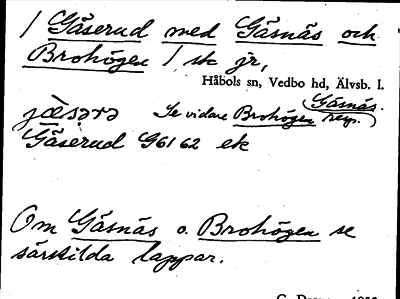 / Gäserud med Gäsnäs och
Brohögen / sk jr,
Håbols sn, Vedbo hd, Älvsb. l.
jæ̀sərə Se vidare Brohögen (Gäsnäs. resp.)
Gäserud G6162 ek
Om Gäsnäs o. Brohögen se
särskilda lappar.